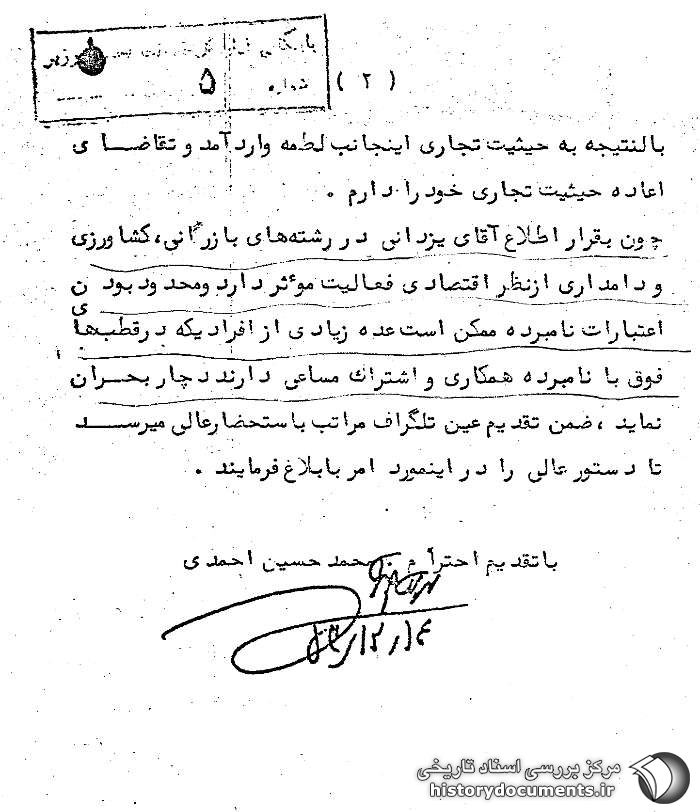 شماره ۵
( ۲ )
بالنتیجه به حیثیت تجاری اینجانب لطمه وارد آمد و تقاضای
اعاده حیثیت تجاری خود را دارم .
چون بقرار اطلاع آقای یزدانی در رشته‌های بازرگانی، کشاورزی
و دامداری ازنظر اقتصادی فعالیت موثر دارد ومحدود بودن
اعتبارات نامبرده ممکن است عده زیادی از افرادیکه درقطبهای
فوق با نامبرده همکاری و اشتراك مساعی دارند دچار بحران
نماید ، ضمن تقدیم عین تلگراف مراتب باستحضارعالی میرسد
تا دستور عالی را در اینمورد امر بابلاغ فرمایند .
باتقدیم احترام محمد حسین احمدی
مرکز بررسی اسناد تاریخی
historydocuments.ir